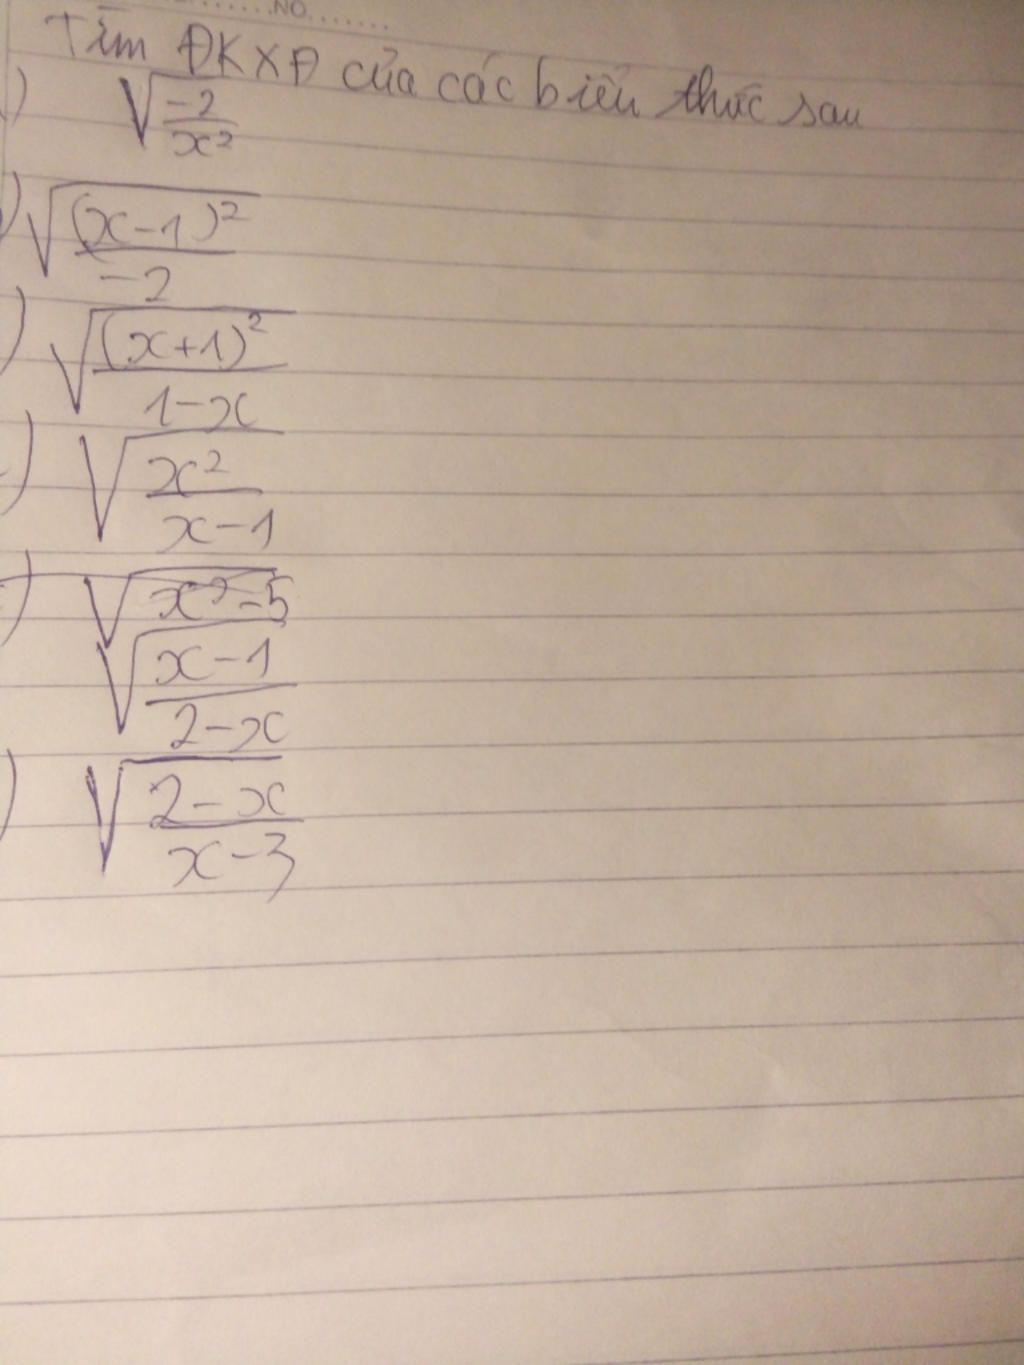 NO.
Tìm ĐKXĐ của các biểu thức sau
) √(-2/x²)
) √((x-1)²/-2)
) √((x+1)²/1-x)
) √(x²/x-1)
) √(x²-5)
√(x-1/2-x)
) √(2-x/x-3)